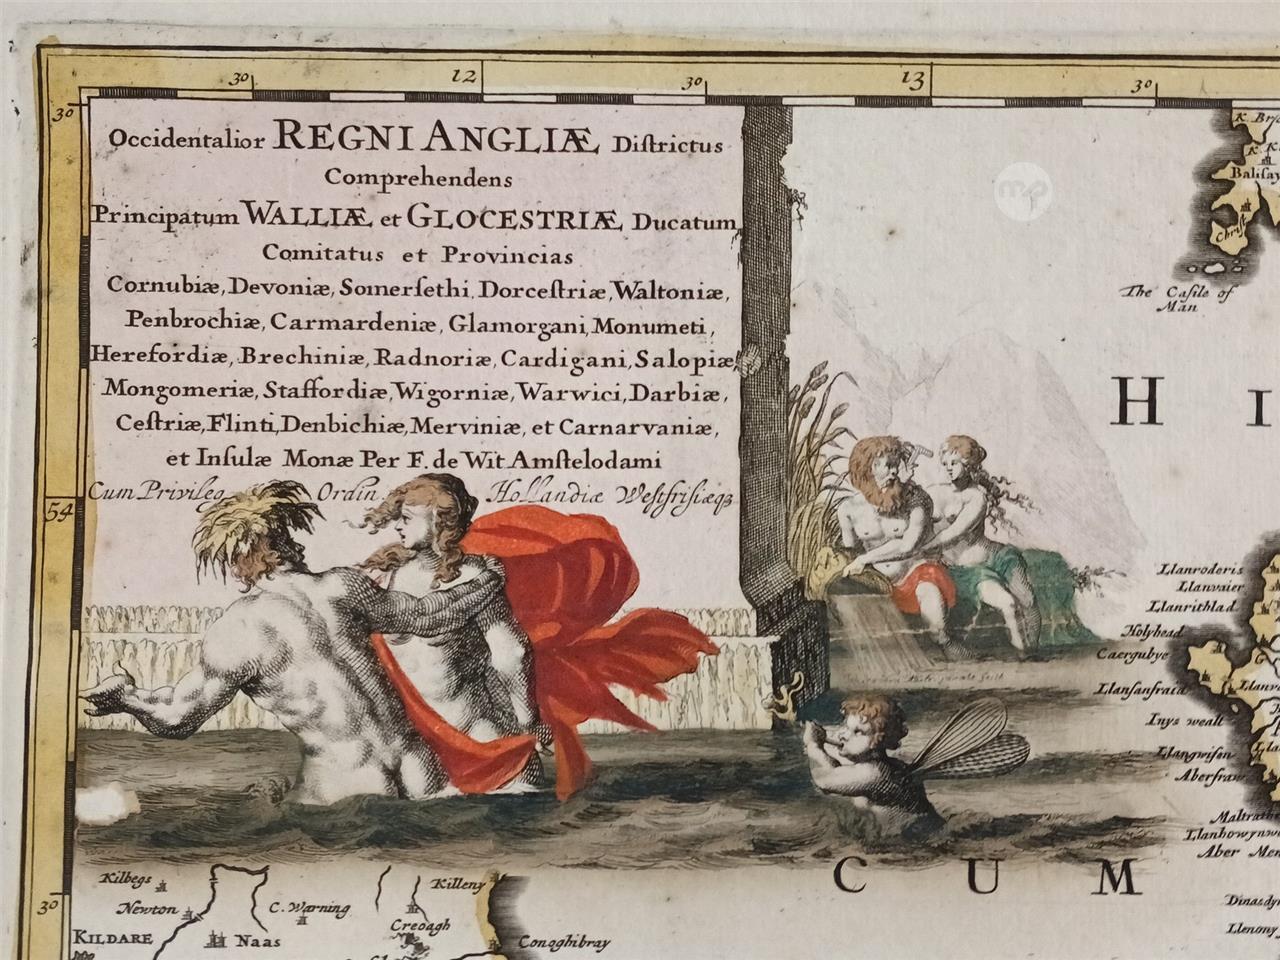 30
12
30
13
30
30
Occidentalior REGNI ANGLIÆ Districtus
Comprehendens
Principatum WALLIÆ et GLOCESTRIÆ Ducatum
Comitatus et Provincias
Cornubiæ, Devoniæ, Somersethi, Dorcestriæ, Waltoniæ,
Penbrochiæ, Carmardeniæ, Glamorgani, Monumeti,
Herefordiæ, Brechiniæ, Radnoriæ, Cardigani, Salopiæ
Mongomeriæ, Staffordiæ, Wigorniæ, Warwici, Darbiæ,
Cestriæ, Flinti, Denbichiæ, Merviniæ, et Carnarvaniæ,
et Insulæ Monæ Per F. de Wit Amstelodami
Cum Privileg Ordin Hollandiæ Westfrisiæq3
54
mp
Balisay
The Castle of
Man
H I
Llanroderis
Llanvaier
Llanrithlad
Holyhead
Caergubye
Llansanfraid
Inys wealt
Llangwifen
Aberfraw
Aber Men
C U M
Kilbegs
Killeny
Newton
C. Warning
Creoagh
30
KILDARE
Naas
Conoghibray